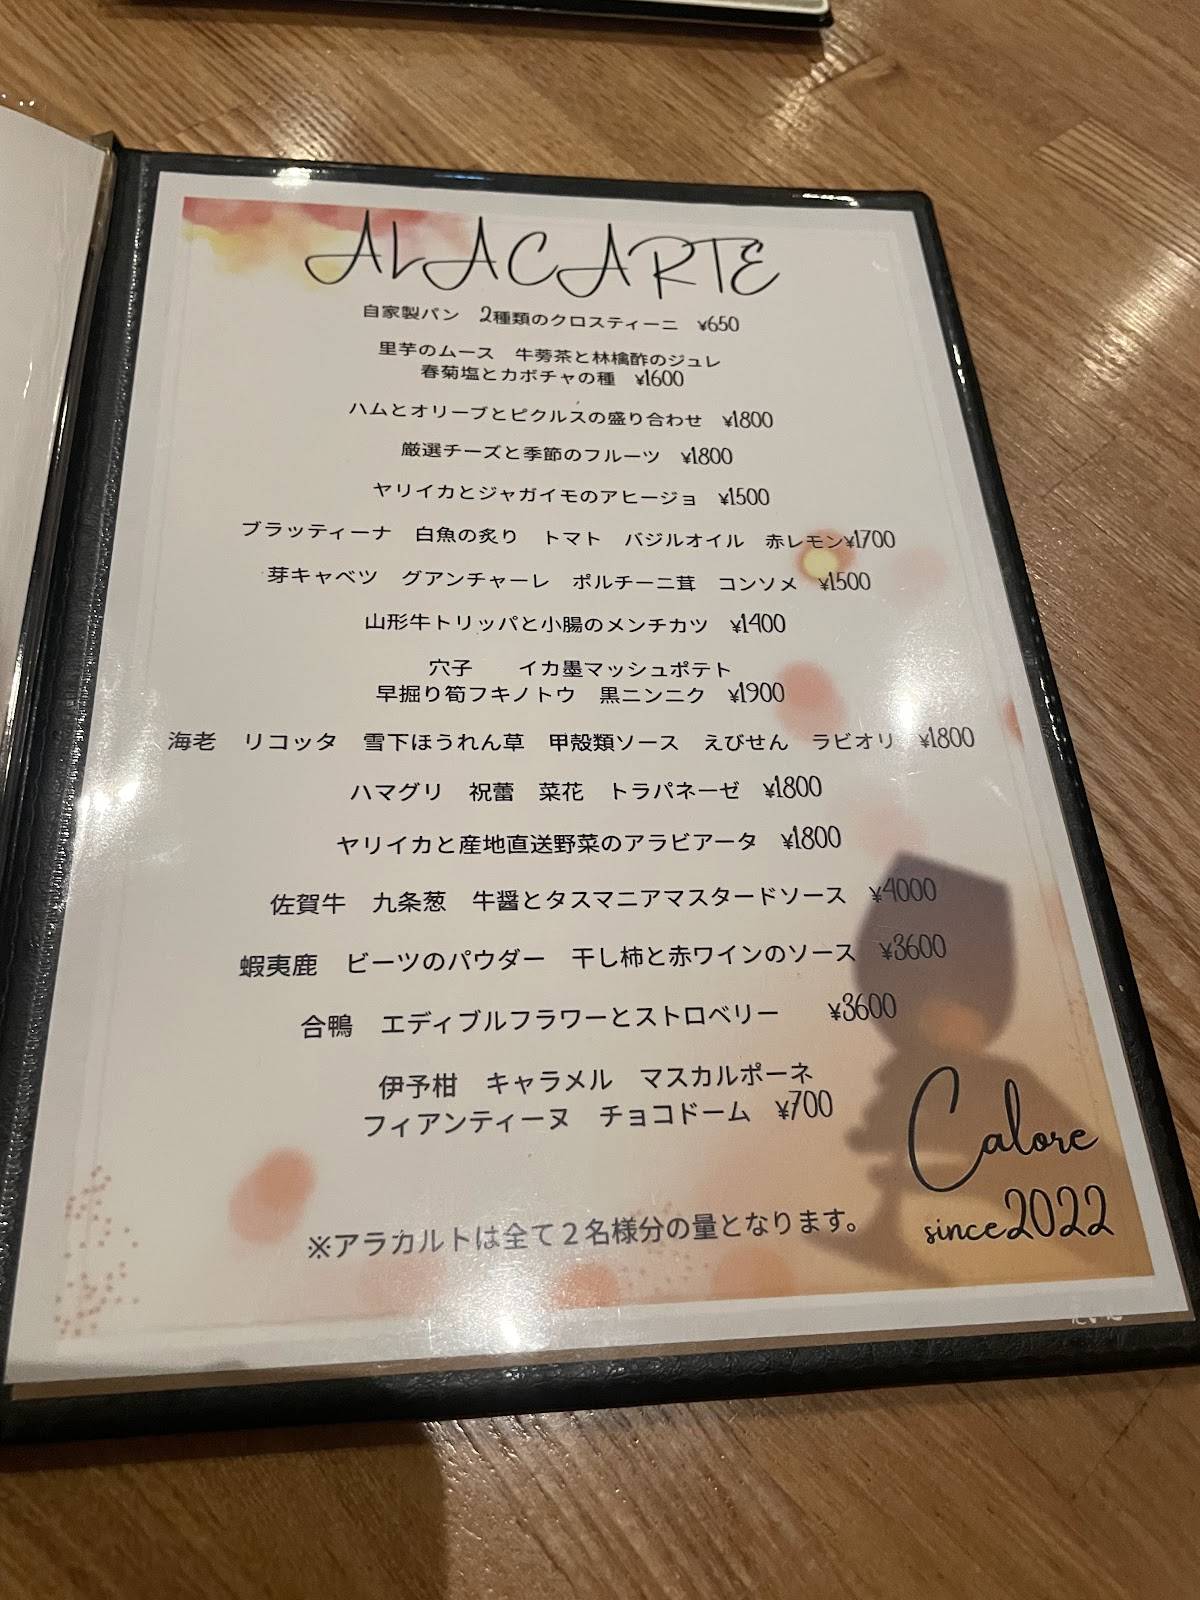 ALACARTE
自家製パン　2種類のクロスティーニ　¥650
里芋のムース　牛蒡茶と林檎酢のジュレ
春菊塩とカボチャの種　¥1600
ハムとオリーブとピクルスの盛り合わせ　¥1800
厳選チーズと季節のフルーツ　¥1800
ヤリイカとジャガイモのアヒージョ　¥1500
ブラッティーナ　白魚の炙り　トマト　バジルオイル　赤レモン¥1700
芽キャベツ　グアンチャーレ　ポルチーニ茸　コンソメ　¥1500
山形牛トリッパと小腸のメンチカツ　¥1400
穴子　　イカ墨マッシュポテト
早掘り筍フキノトウ　黒ニンニク　¥1900
海老　リコッタ　雪下ほうれん草　甲殻類ソース　えびせん　ラビオリ　¥1800
ハマグリ　祝蕾　菜花　トラパネーゼ　¥1800
ヤリイカと産地直送野菜のアラビアータ　¥1800
佐賀牛　九条葱　牛醤とタスマニアマスタードソース　¥4000
蝦夷鹿　ビーツのパウダー　干し柿と赤ワインのソース　¥3600
合鴨　エディブルフラワーとストロベリー　　¥3600
伊予柑　キャラメル　マスカルポーネ
フィアンティーヌ　チョコドーム　¥700
Calore
since2022
※アラカルトは全て２名様分の量となります。